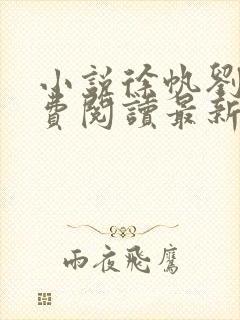 小説徐帆劉
費閱讀最新
雨夜飛鷹